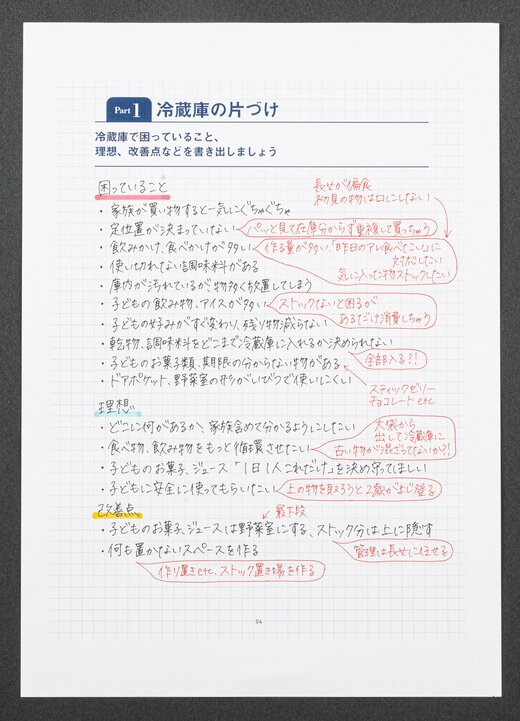 Part 1 冷蔵庫の片づけ
冷蔵庫で困っていること、
理想、改善点などを書き出しましょう
困っていること
長女が偏食
初見の物は口にしない
・家族が買い物すると一気にぐちゃぐちゃ
・定位置が決まっていない
パッと見て在庫分からず重複して買っちゃう
・飲みかけ、食べかけが多い
作る量が多い、「昨日のアレ食べてこい」に
対応したい
気に入った物ストックしたい
・使い切れない調味料がある
・庫内が汚れているが物多く放置してしまう
・子どもの飲み物、アイスが多い
ストックないと困るが
あるだけ消費しちゃう
・子どもの好みがすぐ変わり、残り物減らない
・乾物、調味料をどこまで冷蔵庫に入れるか決められない
全部入る?!
・子どものお菓子類、期限の分からない物がある
・ドアポケット、野菜室の形がいびつで使いにくい
スティックゼリー
チョコレートetc
理想
・どこに何があるか、家族含めて分かるようにしたい
大袋から
出して冷蔵庫に
古い物が混ざってないか?!
・食べ物、飲み物をもっと循環させたい
・子どものお菓子、ジュース「1日1人これだけ」を決め守ってほしい
・子どもに安全に使ってもらいたい
上の物を取ろうと2歳がよじ登る
改善点
最下段
・子どものお菓子、ジュースは野菜室にする、ストック分は上に隠す
・何も置かないスペースを作る
管理は長女に任せる
作り置きetc、ストック置き場を作る
04